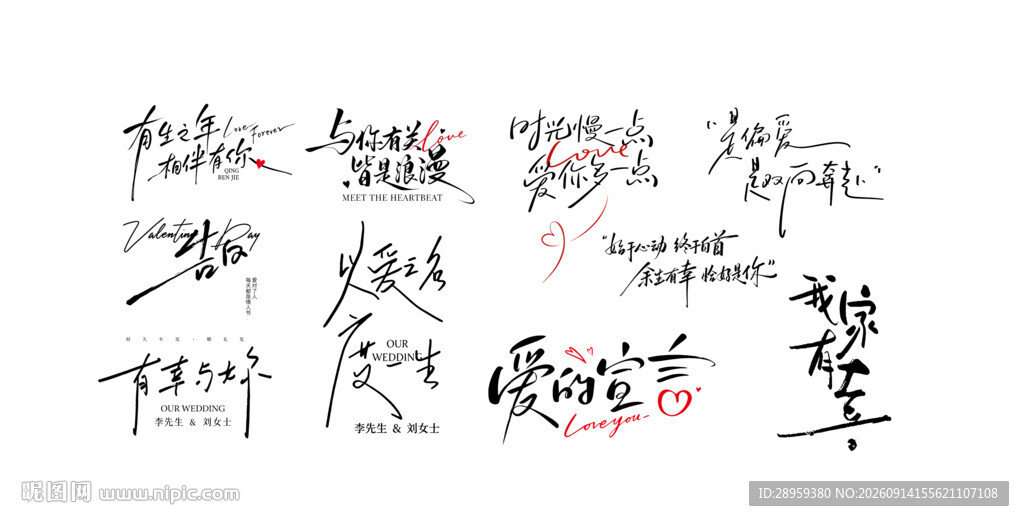 有生之年
Love Forever
相伴有你
QING
REN JIE
与你有关
Love
皆是浪漫
MEET THE HEARTBEAT
时光慢一点
Love
爱你多一点
"是偏爱
是双向奔赴"
Valentine Day
告白
爱对了人
每天都是情人节
以爱之名
度一生
OUR
WEDDING
李先生 & 刘女士
"始于心动 终于白首
余生有幸 恰好是你"
好久不见·婚礼见
有幸与你
OUR WEDDING
李先生 & 刘女士
爱的宣言
Love you
我家有大喜
昵图网 www.nipic.com
ID:28959380 NO:20260914155621107108